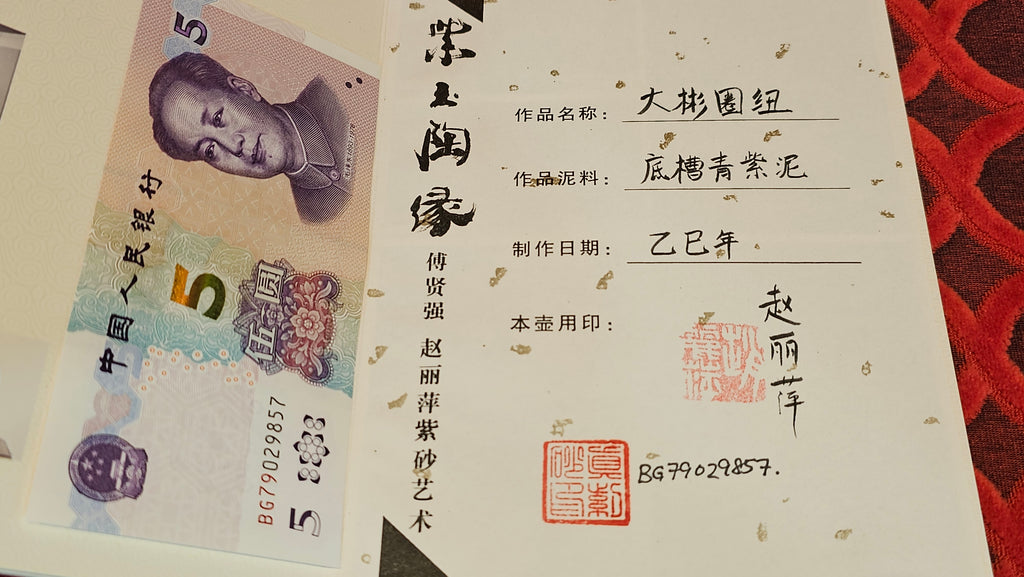 5
中国人民银行
5
伍圆
BG79029857
5
紫玉陶缘
傅贤强 赵丽萍紫砂艺术
作品名称： 大彬圈纽
作品泥料： 底槽青紫泥
制作日期： 乙巳年
本壶用印：
赵丽萍
BG79029857.